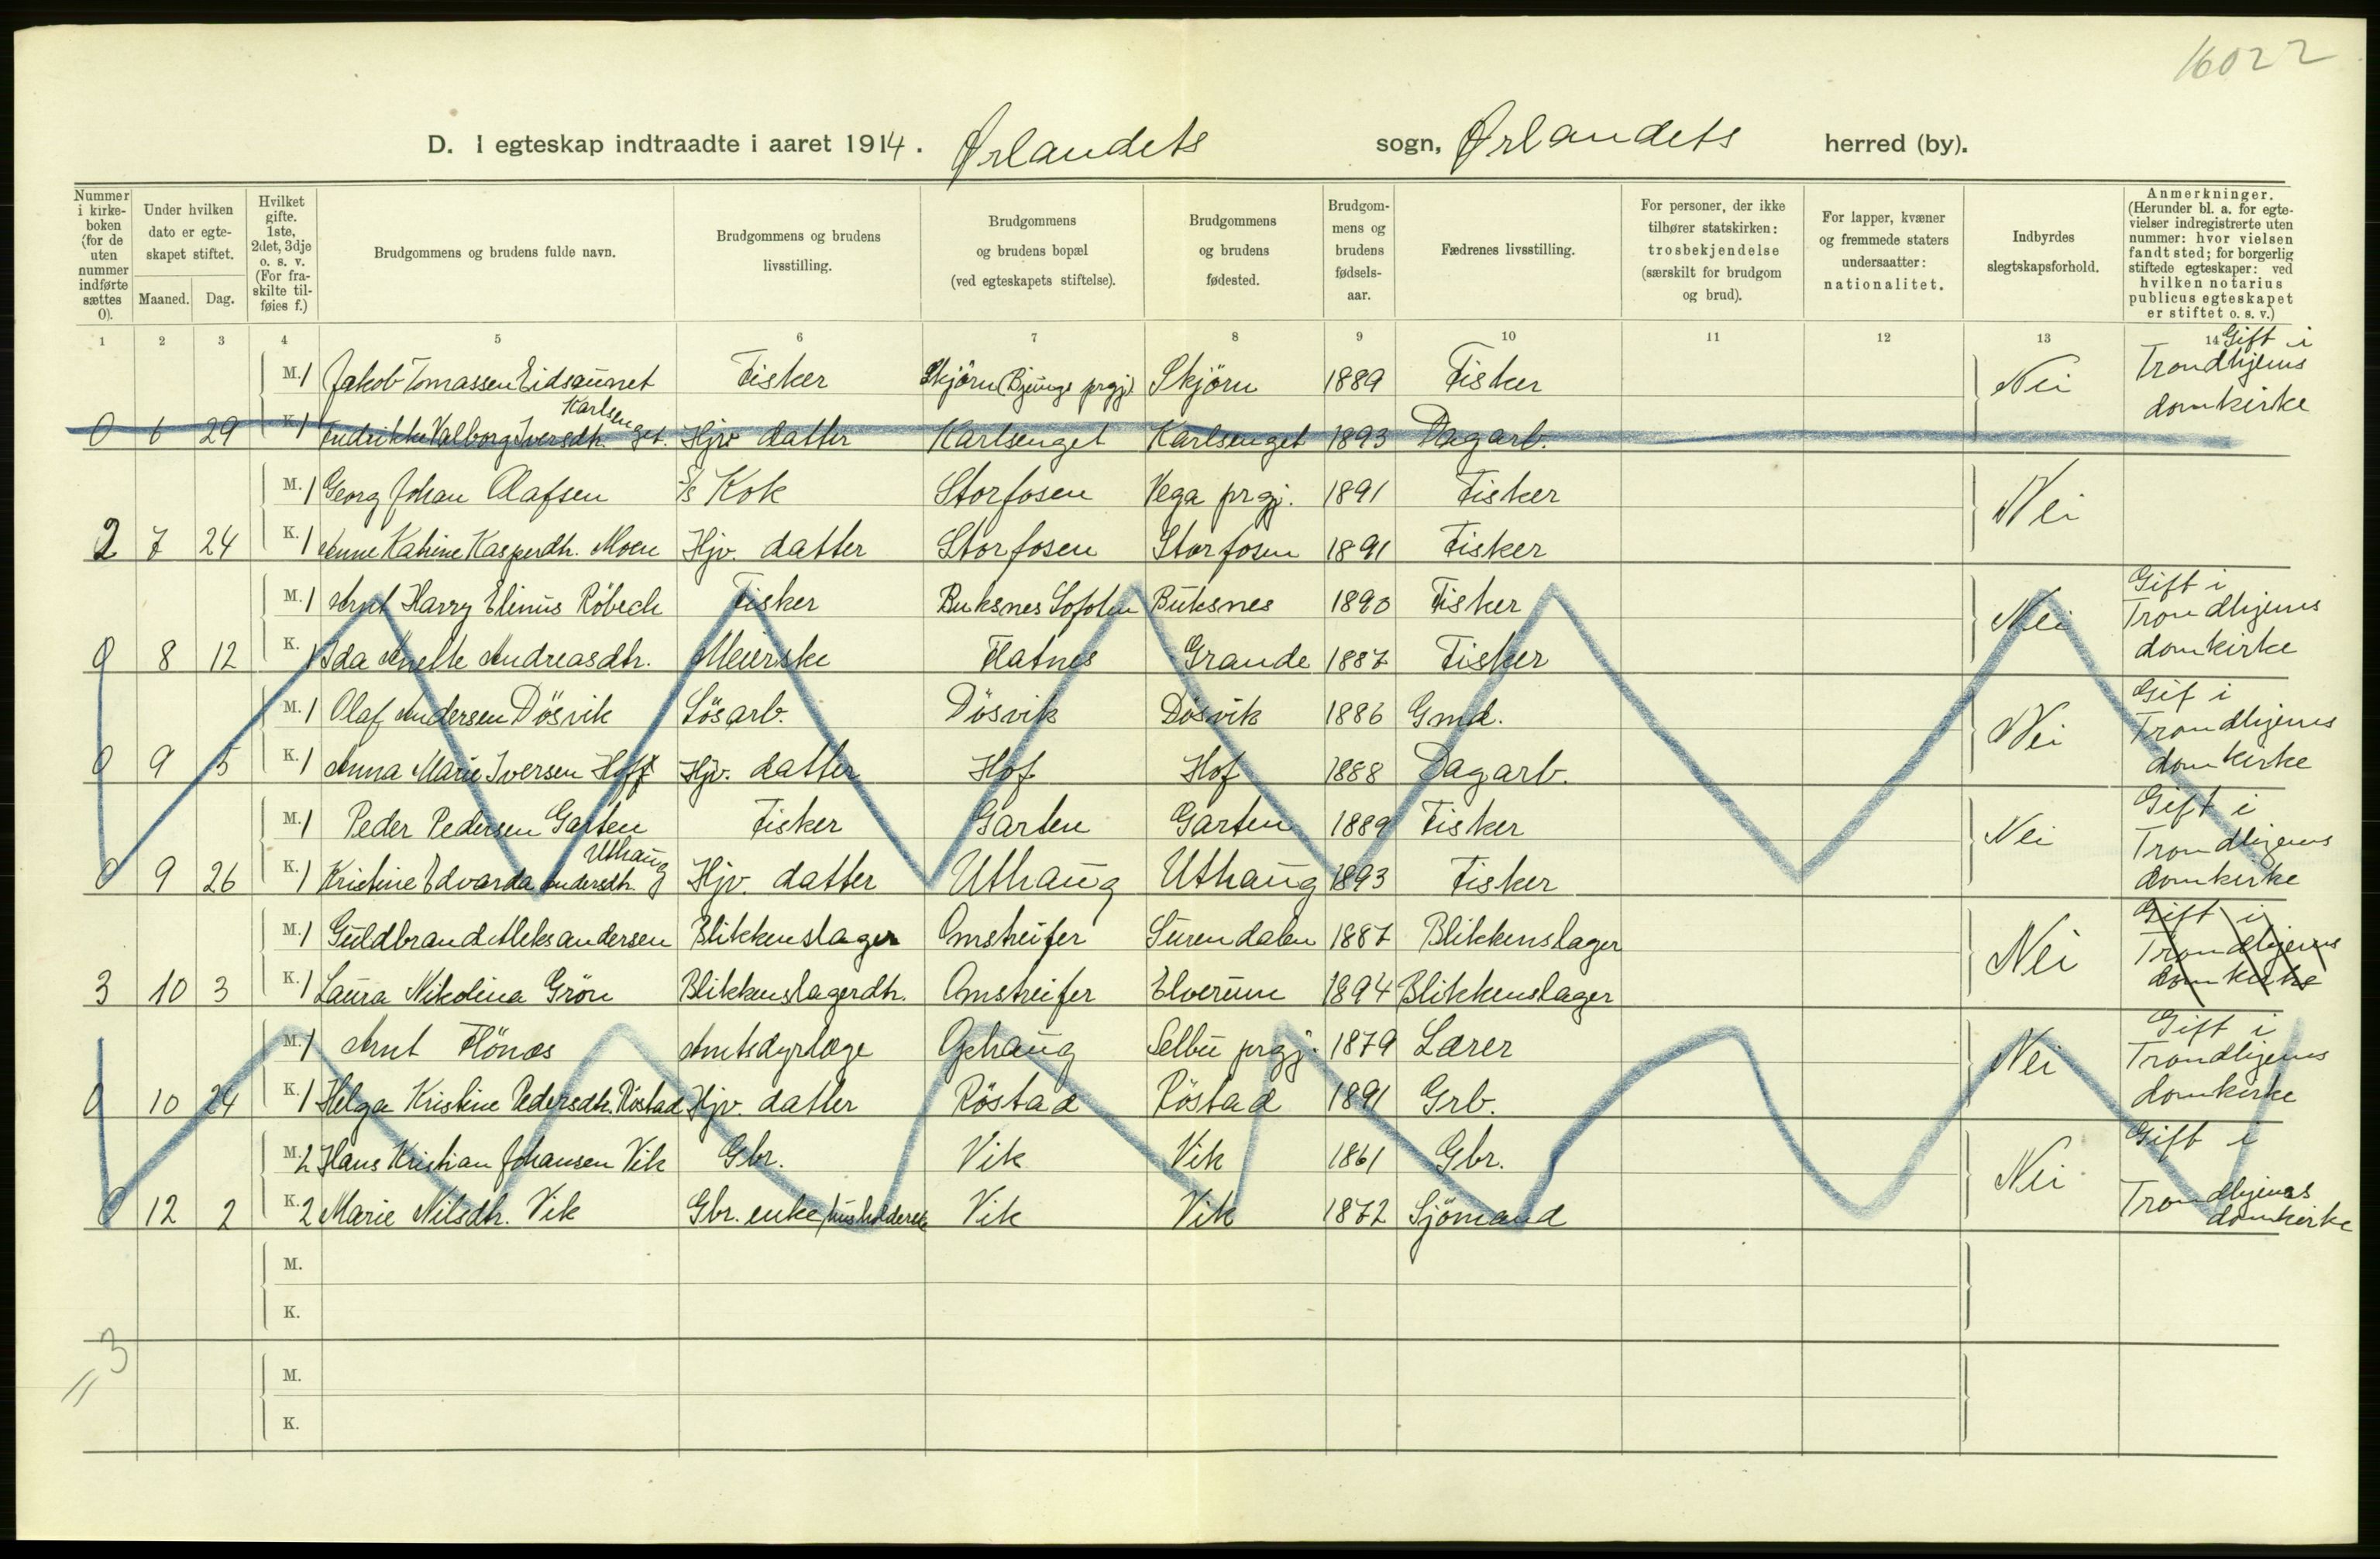 16022
D. I egteskap indtraadte i aaret 1914. Ørlandets sogn, Ørlandets herred (by).
Nummer i kirke-boken (for de uten nummer indførte sættes 0). Under hvilken dato er egte-skapet stiftet. Maaned. Dag. Hvilket gifte. 1ste, 2det, 3dje o. s. v. (For fra-skilte til-føies f.) Brudgommens og brudens fulde navn. Brudgommens og brudens livsstilling. Brudgommens og brudens bopæl (ved egteskapets stiftelse). Brudgommens og brudens fødested. Brudgom-mens og brudens fødsels-aar. Fædrenes livsstilling. For personer, der ikke tilhører statskirken: trosbekjendelse (særskilt for brudgom og brud). For lapper, kvæner og fremmede staters undersaatter: nationalitet. Indbyrdes slegtskapsforhold. Anmerkninger. (Herunder bl. a. for egte-vielser indregistrerte uten nummer: hvor vielsen fandt sted; for borgerlig stiftede egteskaper: ved hvilken notarius publicus egteskapet er stiftet o. s. v.)
1 2 3 4 5 6 7 8 9 10 11 12 13 14
M. 1 Jakob Tomassen Eidsaunet Fisker Skjörn (Bjugn prgj) Skjörn 1889 Fisker Nei Gift i Trondhjems domkirke
0 6 29 K. 1 Fredrikke Valborg Iversdtr. Karlsenget. Hjv datter Karlsenget Karlsenget 1893 Dagarb.
M. 1 Georg Johan Olafsen S/s Kok Storfosen Vega prgj. 1891 Fisker Nei
2 7 24 K. 1 Anne Katrine Kasperdtr. Moen Hjv. datter Storfosen Storfosen 1891 Fisker
M. 1 Arnt Harry Elinus Röbech Fisker Buksnes Lofoten Buksnes 1890 Fisker Nei Gift i Trondhjems domkirke
0 8 12 K. 1 Ida Anette Andreasdtr. Meierske Flatnes Grande 1887 Fisker
M. 1 Olaf Andersen Dösvik Lösarb. Dösvik Dösvik 1886 Gmd. Nei Gif i Trondhjems domkirke
0 9 5 K. 1 Anna Marie Iversen Hoff Hjv. datter Hof Hof 1888 Dagarb.
M. 1 Peder Pedersen Garten Fisker Garten Garten 1889 Fisker Nei Gift i Trondhjems domkirke
0 9 26 K. 1 Kristine Edvarda Andersdtr. Uthaug Hjv. datter Uthaug Uthaug 1893 Fisker
M. 1 Guldbrand Aleksandersen Blikkenslager Omstreifer Surendalen 1887 Blikkenslager Nei Gift i Trondhjems domkirke
3 10 3 K. 1 Laura Nikolina Grön Blikkenslagerdtr. Omstreifer Elverum 1894 Blikkenslager
M. 1 Arnt Flönes Amtsdyrlæge Ophaug Selbu prgj. 1879 Lærer Nei Gift i Trondhjems domkirke
0 10 24 K. 1 Helga Kristine Pedersdtr. Röstad Hjv. datter Röstad Röstad 1891 Grb.
M. 2 Hans Kristian Johansen Vik Gbr. Vik Vik 1861 Gbr. Nei Gift i Trondhjems domkirke
0 12 2 K. 2 Marie Nilsdtr. Vik Gbr. enke husholderske Vik Vik 1872 Sjömand
M.
K.
3
M.
K.